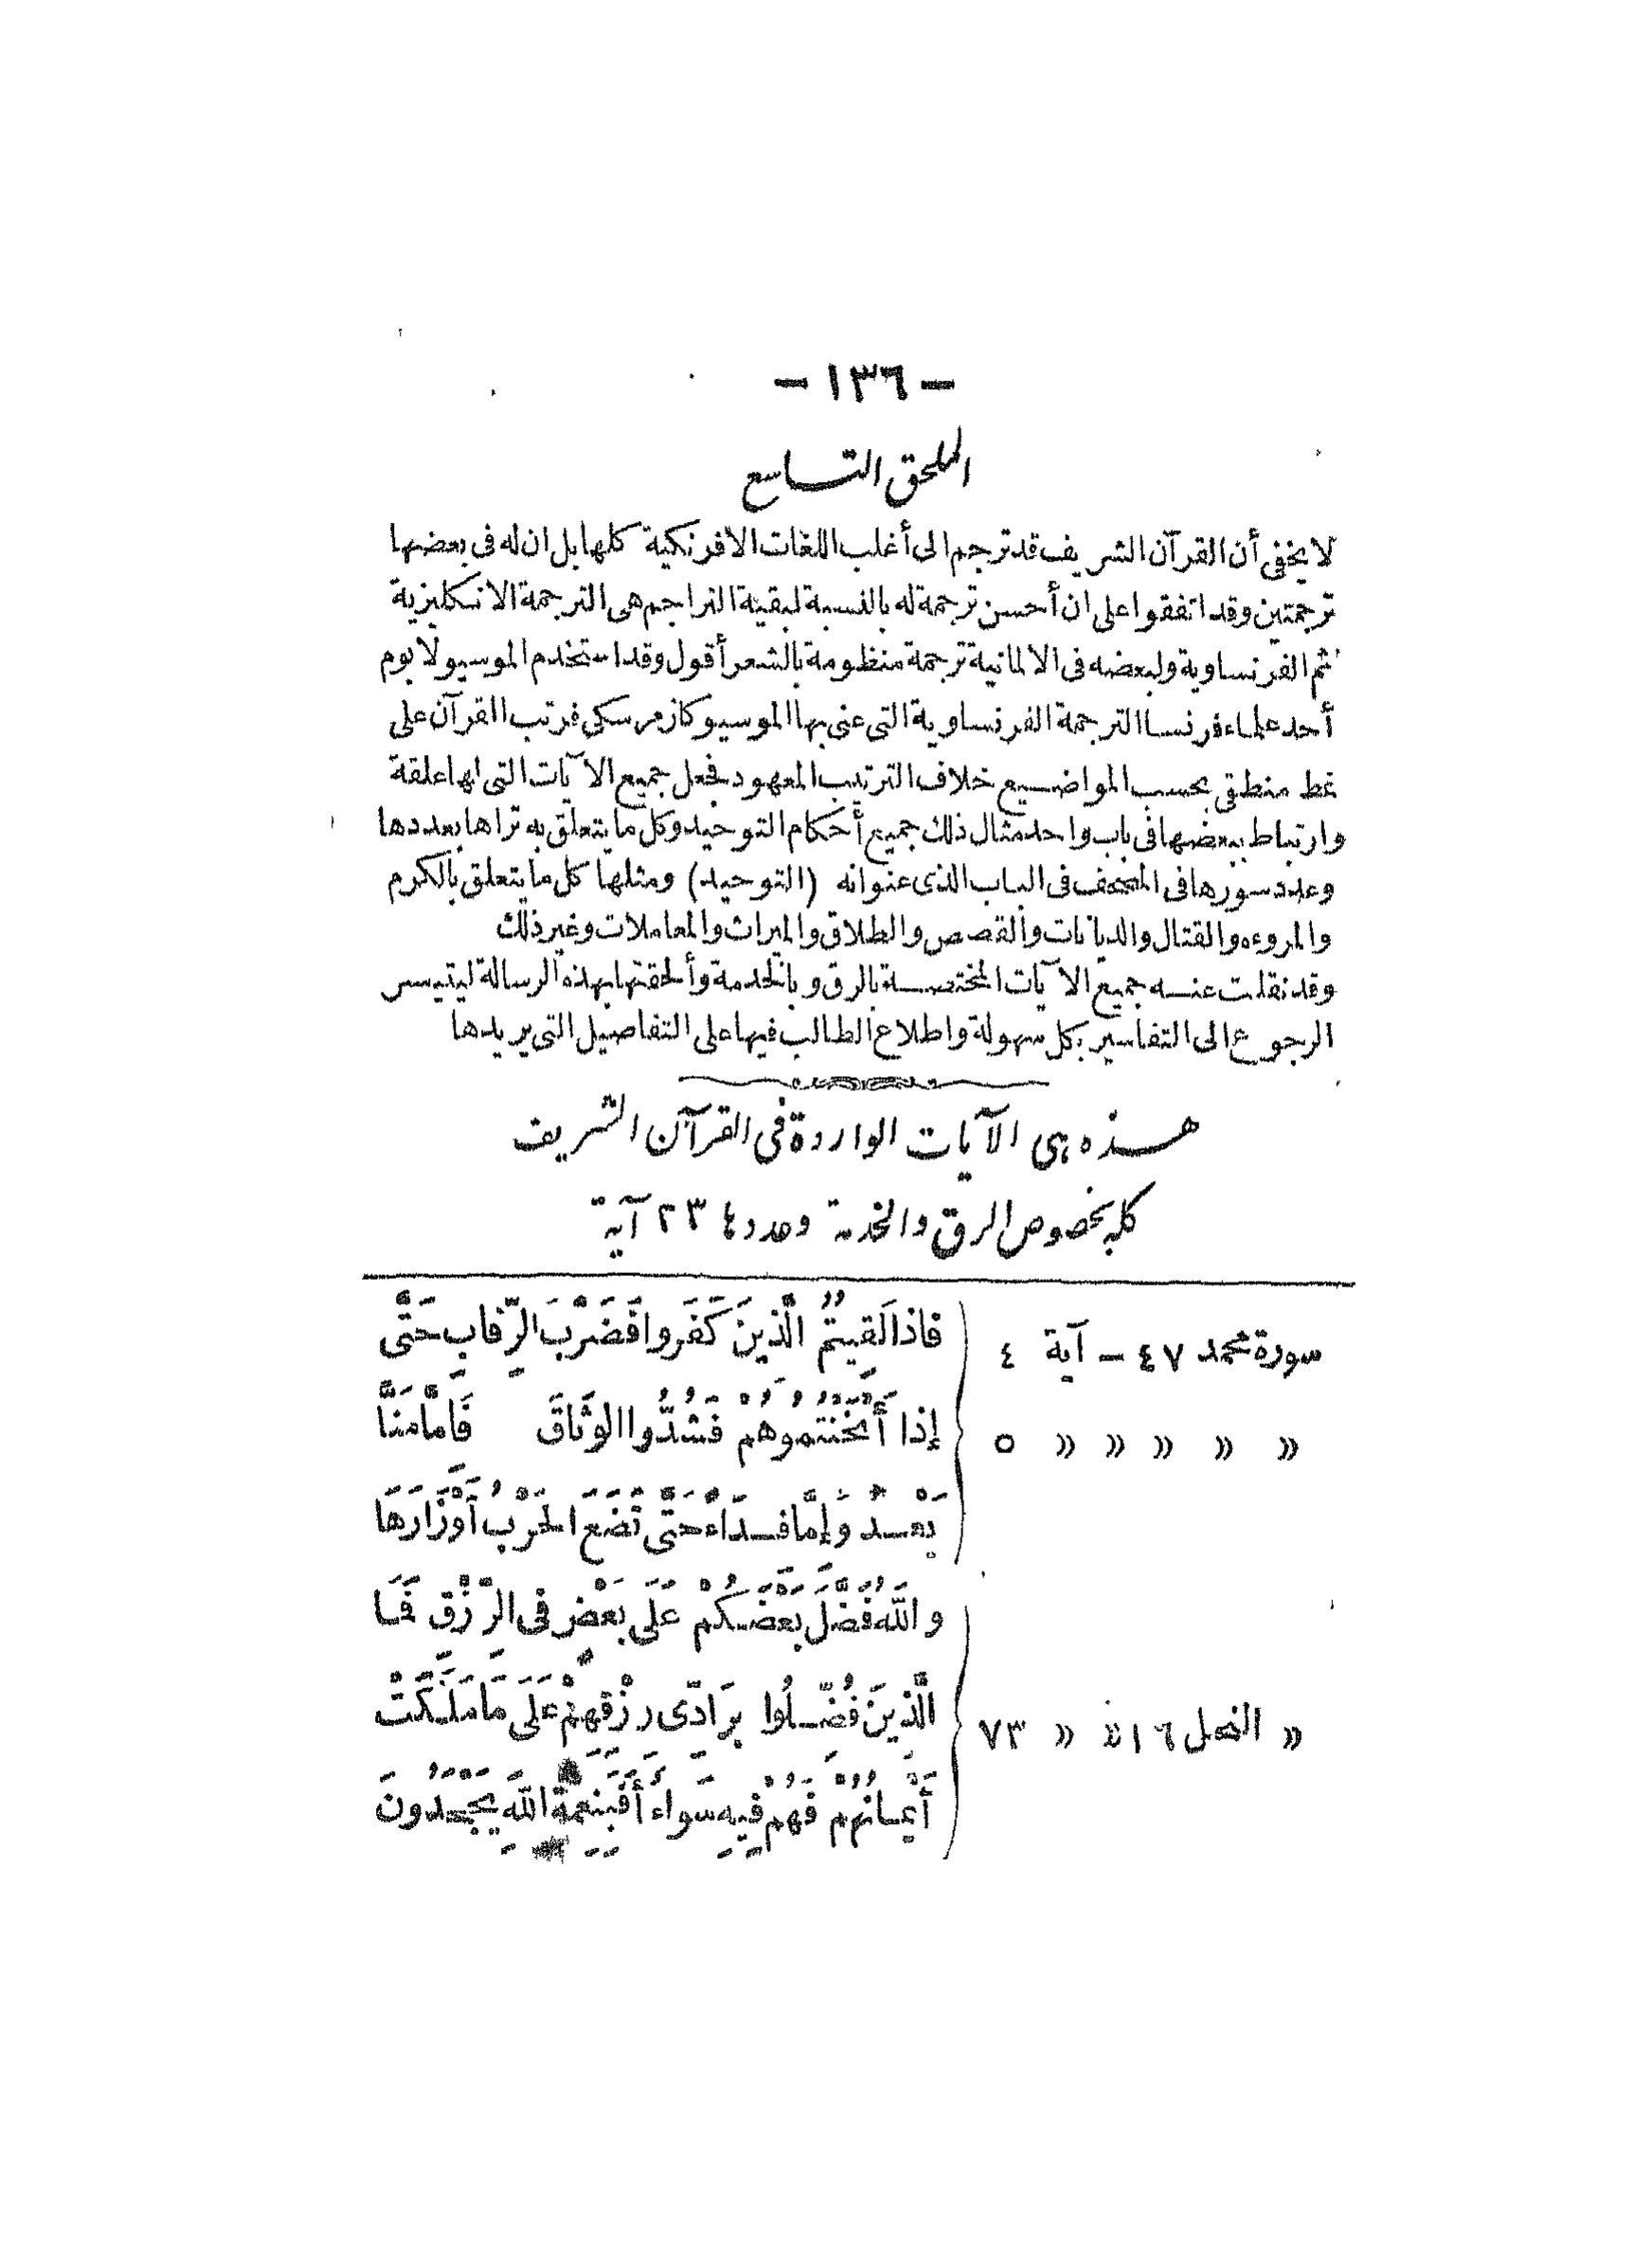 — ١٣٦ —
الملحق التاسع
لا يخفى أن القرآن الشريف قد ترجم الى أغلب اللغات الافرنكية كلها بل ان له فى بعضها
ترجمتين وقد اتفقوا على ان أحسن ترجمة له بالنسبة لبقية التراجم هى الترجمة الانكليزية
ثم الفرنساوية ولبعضه فى الالمانية ترجمة منظومة بالشعر أقول وقد استخدم الموسيو لا بوم
أحد علماء فرنسا الترجمة الفرنساوية التى عنى بها الموسيو كازمرسكى فرتب القرآن على
نمط منطقى بحسب المواضيع خلاف الترتيب المعهود فجعل جميع الآيات التى لها علقة
وارتباط ببعضها فى باب واحد مثال ذلك جميع أحكام التوحيد وكل ما يتعلق به تراها بعددها
وعدد سورها فى المصحف فى الباب الذى عنوانه (التوحيد) ومثلها كل ما يتعلق بالكرم
والمروءه والقتال والديانات والقصص والطلاق والميراث والمعاملات وغير ذلك
وقد نقلت عنه جميع الآيات المختصة بالرق وبالخدمة وألحقتها بهذه الرسالة ليتيسر
الرجوع الى التفاسير بكل سهولة واطلاع الطالب فيها على التفاصيل التى يريدها
هذه هى الآيات الواردة فى القرآن الشريف
كله بخصوص الرق والخدمة وعددها ٢٣ آية
سورة محمد ٤٧ — آية ٤ فاذا لَقِيتُمُ الَّذِينَ كَفَروا فَضَرْبَ الرِّقابِ حَتَّى
» » » » » ٥ إذا أَثْخَنْتُموهُمْ فَشُدُّوا الوَثَاقَ فَإمَّا مَنًّا
بَعْدُ وَإمَّا فِدَاءً حَتَّى تَضَعَ الحَرْبُ أَوْزَارَهَا
» النحل ١٦ » » ٧٣ واللهُ فَضَّلَ بَعْضَكُمْ عَلَى بَعْضٍ فِى الرِّزْقِ فَمَا
الَّذِينَ فُضِّلُوا بِرَادِّى رِزْقِهِمْ عَلَى مَا مَلَكَتْ
أَيْمَانُهُمْ فَهُمْ فِيهِ سَوَاءٌ أَفَبِنِعْمَةِ اللهِ يَجْحَدُونَ